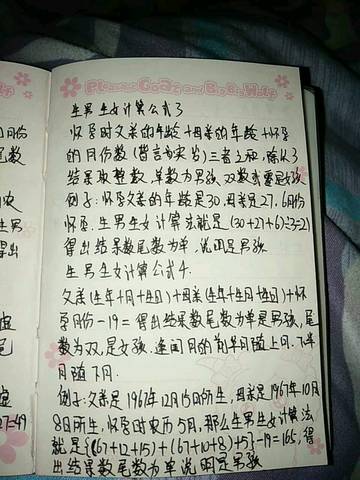 Pleasant Goat and Big Big Wolf
生男生女计算公式3
怀孕时父亲的年龄+母亲的年龄+怀孕
的月份数(皆言为实岁)三者之和,除以3
结果取整数,单数为男孩,双数
例子:怀孕父亲的年龄是30,母亲是27,6月份
怀孕.生男生女计算法就是(30+27+6)÷3=21
得出结果数尾数为单,说明是男孩
生男生女计算公式4.
父亲(生年+月+生日)+母亲(生年+生月+生日)+怀
孕月份-19=得出结果数尾数为单是男孩,尾
数为双,是女孩.逢闰月的前半月随上月.下半
月随下月.
例子:父亲是1967年12月15日所生,母亲是1967年10月
8日所生,怀孕时农历5月,那么生男生女计算法
就是{(67+12+15)+(67+10+8)+5}-19=165,得
出结果数尾数为单说明是男孩
月份
尾数
农
生男
得出
虚
尾
虚
27=49